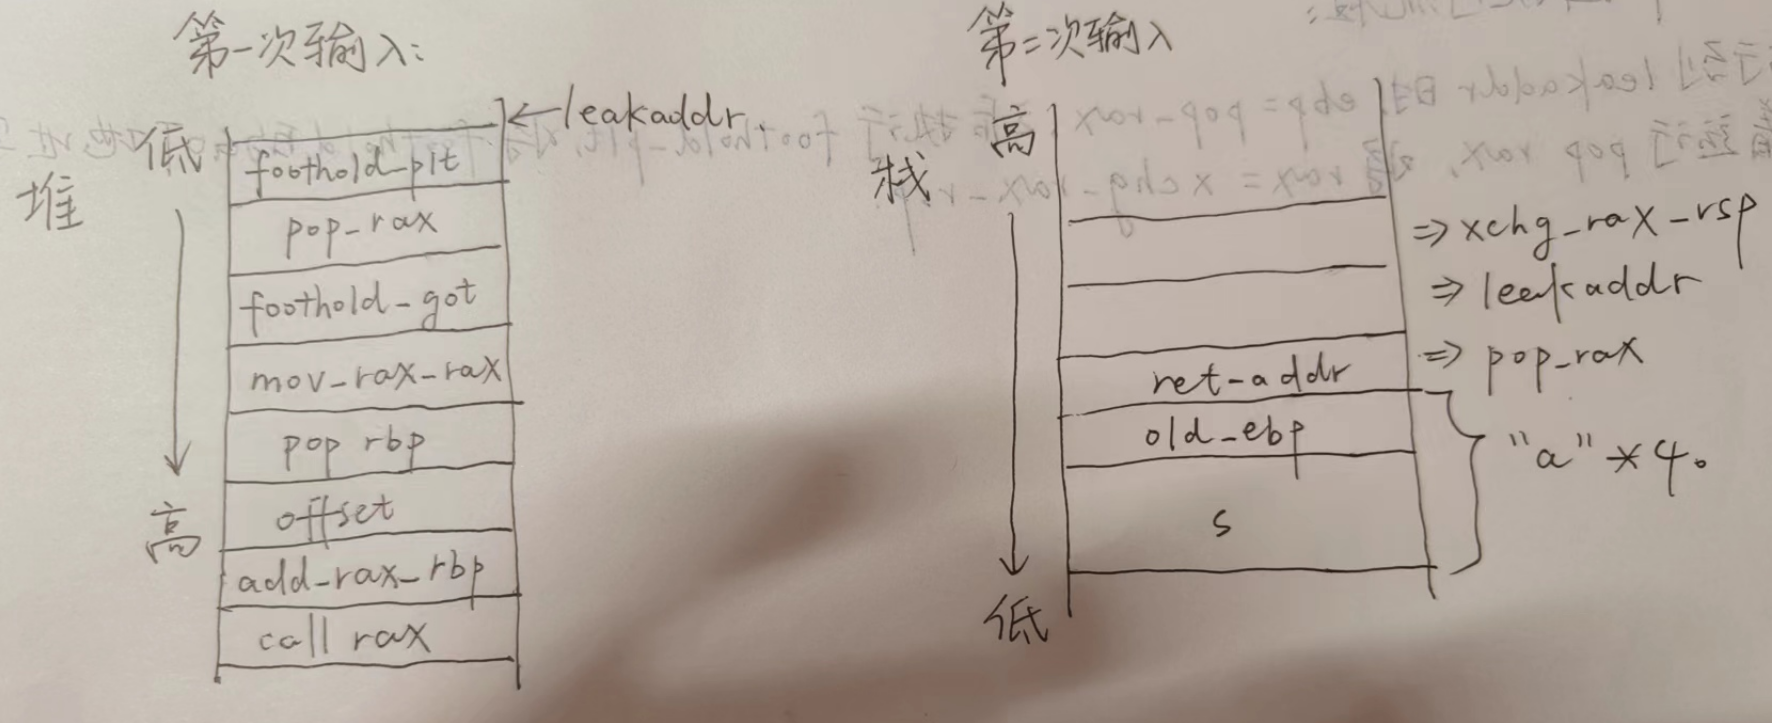 第一次输入:
低
堆
高
←leakaddr.
foothold_plt
pop_rax
foothold_got
mov_rax_rax
pop rbp
offset
add_rax_rbp
call rax
第二次输入
高
栈
低
⇒ xchg_rax_rsp
⇒ leakaddr
ret_addr ⇒ pop_rax
old_ebp
s
"a" * 40